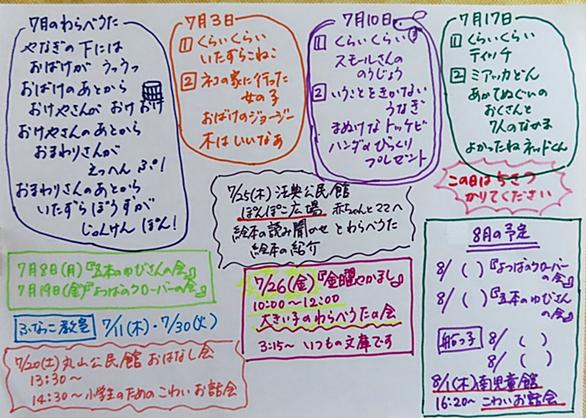 7月のわらべうた
やなぎの下には
おばけがうぅっ
おばけのあとから
おけやさんが おけ おけ
おけやさんのあとから
おまわりさんが
えっへん ぷ!
おまわりさんのあとから
いたずらぼうずが
じゃんけん ぽん!
7月3日
1 くらいくらい
いたずらこねこ
2 ネコの家に行った
女の子
おばけのジョージー
木はいいなあ
7月10日
1 くらいくらい
スモールさんの
のうじょう
2 いうことをきかない
うなぎ
まぬけなトッケビ
ハンダのびっくり
プレゼント
7月17日
1 くらいくらい
ティッチ
2 ミアッカどん
あかてぬぐいの
おくさんと
7人のなかま
よかったねネッドくん
この日は
かりてください
7/25(木) 法典公民館
ぽんぽこ広場 赤ちゃんとママへ
絵本の読み聞かせとわらべうた
絵本の紹介
7月8日(月)『五本のゆびさんの会』
7月19日(金)『よつばのクローバーの会』
ふなっこ教室 7/11(木)・7/30(火)
7/20(土)丸山公民館 おはなし会
13:30〜
14:30〜小学生のための こわいお話会
7/26(金)『金曜やかまし』
10:00〜12:00
大きい子のわらべうたの会
3:15〜 いつもの文庫です
8月の予定
8/ ( )『よつばのクローバーの会』
8/ ( )『五本のゆびさんの会』
船っ子 8/ ( )
8/ ( )
8/1(木)南児童館
16:20〜 こわいお話会